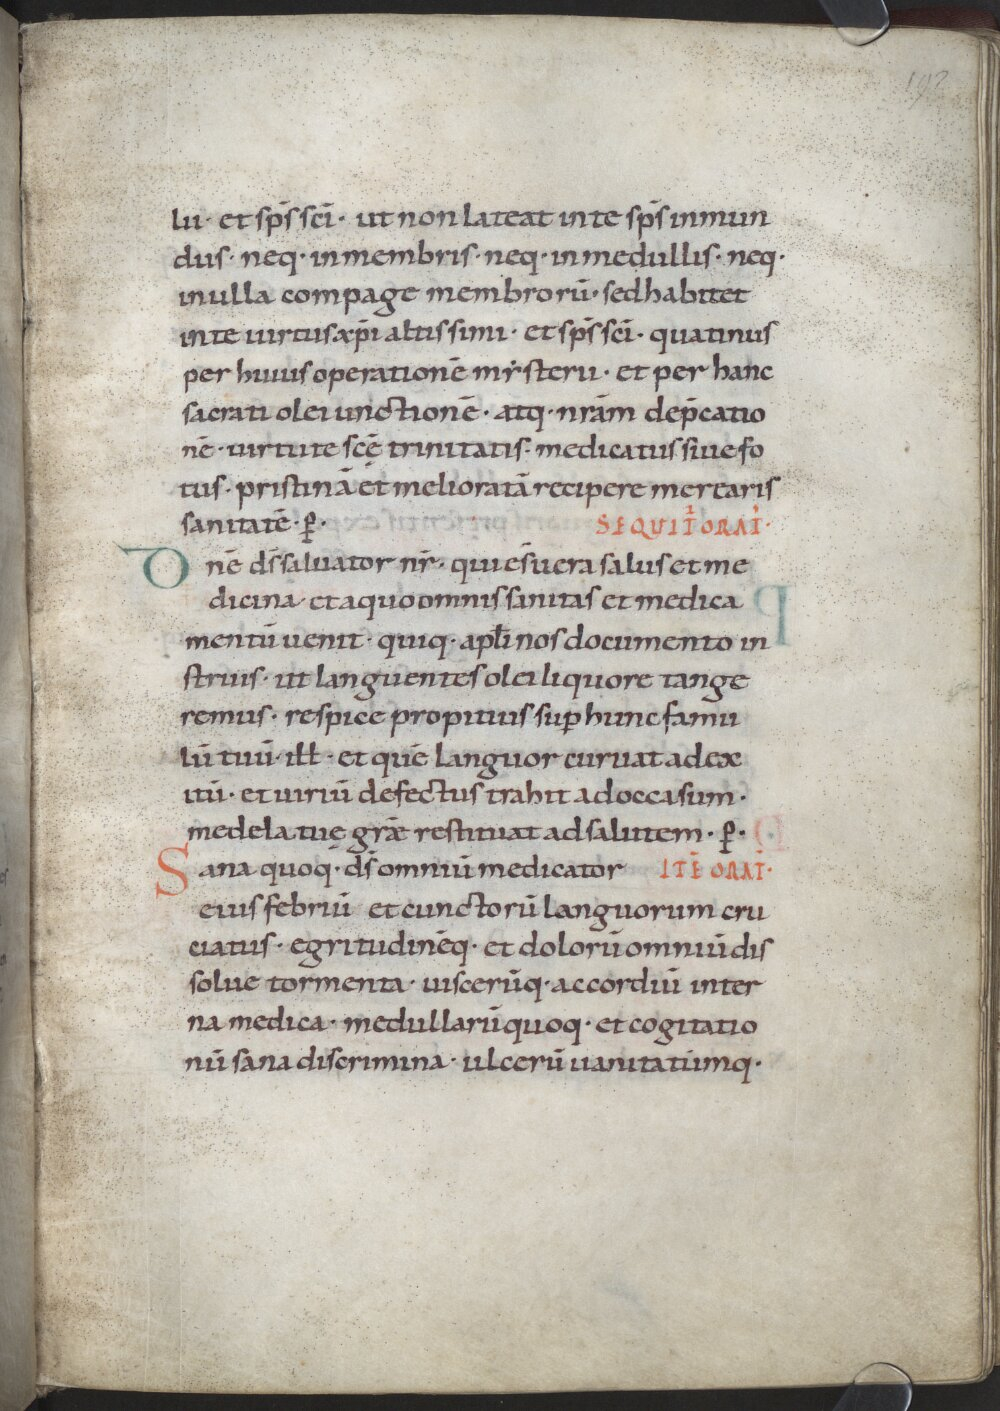 192
lii· et sp̄s sc̄i· ut non lateat in te sp̄s inmun
dus· neq· in membris· neq· in medullis· neq·
in ulla compage membrorū· sed habitet
in te uirtus xp̄i altissimi· et sp̄s sc̄i· quatinus
per huius operationē mẏsterii· et per hanc
sacrati olei unctionē· atq· nr̄am dep̄catio
nē· uirtute sc̄ę trinitatis· medicatus siue fo
tus· pristinā et melioratā recipere merearis
sanitatē· ꝑ· SEQUIT̄ ORAT̄·
Dnē ds̄ saluator nr̄· qui es̄ uera salus et me
dicina· et a quo omnis sanitas et medica
mentū uenit· quiq· apl̄i nos documento in
struis· ut languentes olei liquore tange
remus· respice propitius sup̄ hunc famu
lū tuū· ill̄· et quē languor curuat ad ex
itū· et uiriū defectus trahit ad occasum·
medela tuę grāe restituat ad salutem· ꝑ·
Sana quoq· ds̄ omniū medicator ITĒ ORAT̄·
eius febriū et cunctorū languorum cru
ciatus· egritudinēq· et dolorū omniū dis
solue tormenta· uiscerūq· accordiū inter
na medica· medullarū quoq· et cogitatio
nū sana discrimina· ulcerū uanitatūmq·